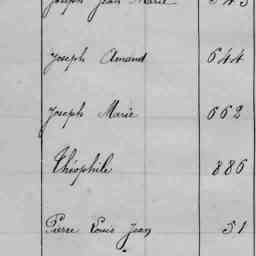 Joseph Jean Marie 543
Joseph Amand 644
Joseph Marie 662
Théophile 886
Pierre Louis Jean 51